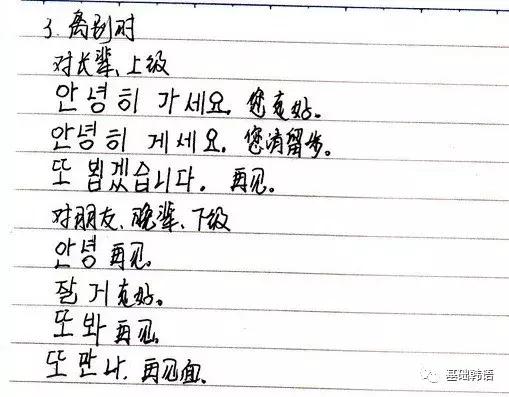 3. 离别时
对长辈、上级
안녕히 가세요. 您走好。
안녕히 게세요. 您请留步。
또 뵙겠습니다. 再见。
对朋友、晚辈、下级
안녕 再见.
잘 거 走好。
또 봐 再见.
또 만나. 再见面.
基础韩语